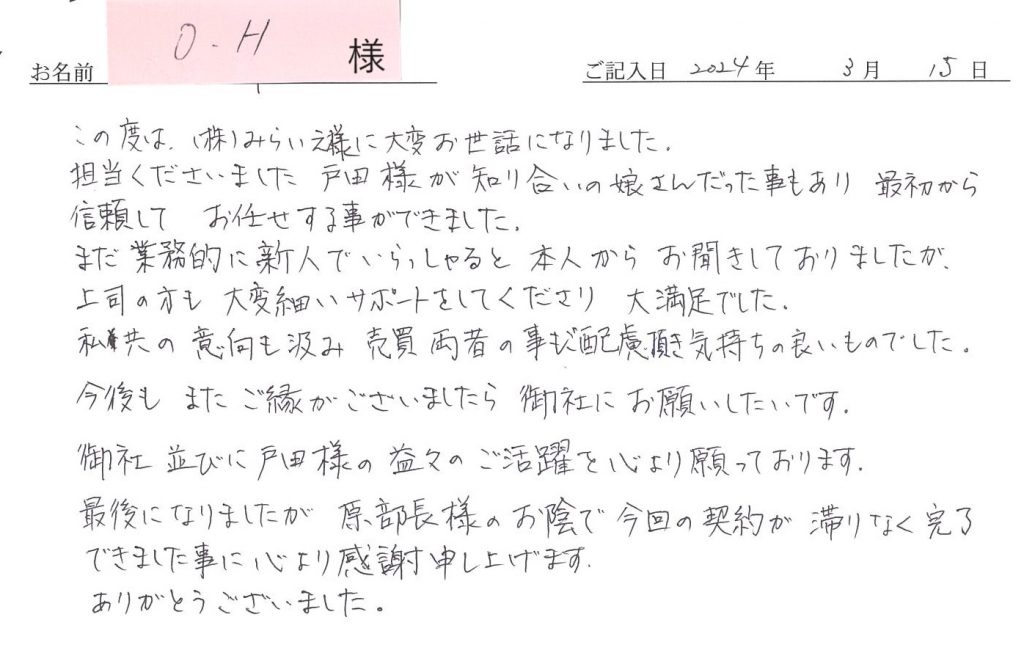 お名前 O.H 様 ご記入日 2024年 3月 15日
この度は、(株)みらいえ様に大変お世話になりました。
担当くださいました 戸田様が 知り合いの娘さんだった事もあり 最初から
信頼して お任せする事ができました。
まだ業務的に新人でいらっしゃると 本人から お聞きしておりましたが、
上司の方も 大変細いサポートをしてくださり 大満足でした。
私共の 意向も汲み 売買両者の事もご配慮頂き気持ちの良いものでした。
今後も また ご縁がございましたら 御社に お願いしたいです。
御社 並びに 戸田様の 益々の ご活躍を 心より願っております。
最後になりましたが 原部長様の お陰で 今回の契約が 滞りなく 完了
できました事に 心より 感謝申し上げます。
ありがとうございました。